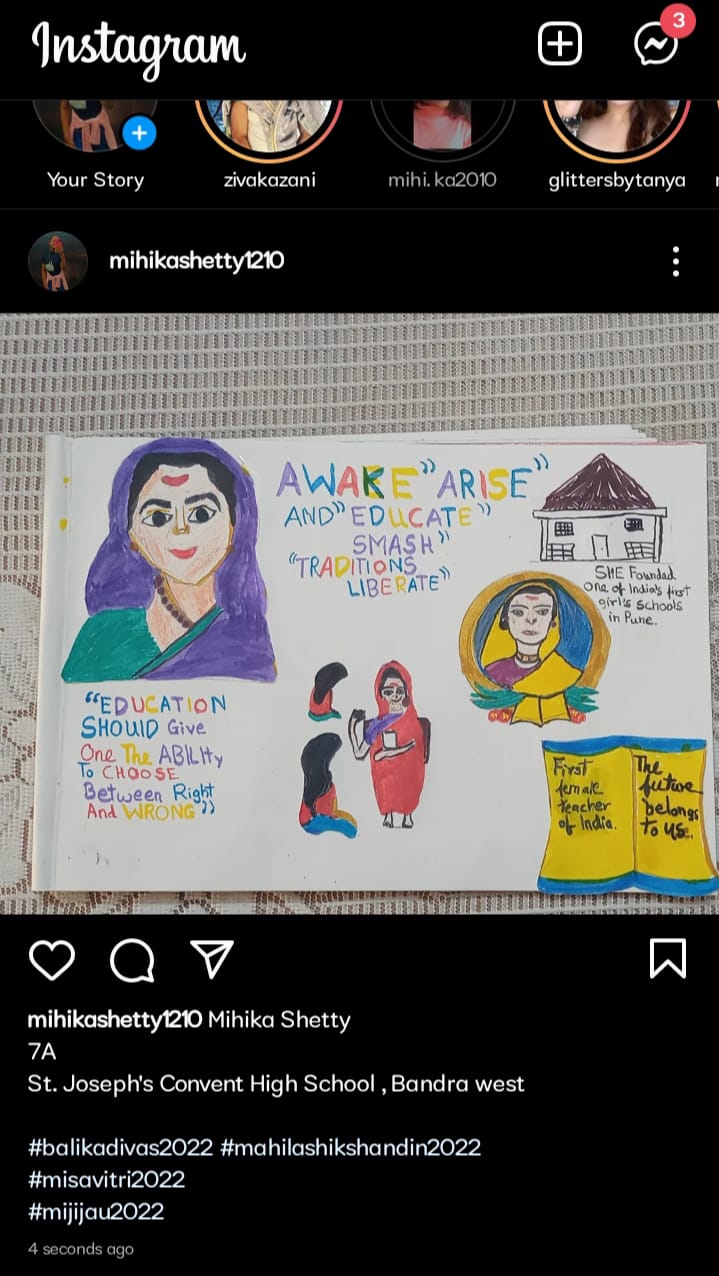 Instagram
3
Your Story
zivakazani
mihi.ka2010
glittersbytanya
mihikashetty1210
AWAKE” ARISE”
AND” EDUCATE”
SMASH”
“TRADITIONS
LIBERATE”
SHE Founded
one of India's first
girl's schools
in Pune.
“EDUCATION
SHOUlD Give
One The ABILIty
To CHOOSE
Between Right
And WRONG”
First
female
teacher
of India.
The
future
belongs
To us.
mihikashetty1210 Mihika Shetty
7A
St. Joseph's Convent High School , Bandra west
#balikadivas2022 #mahilashikshandin2022
#misavitri2022
#mijijau2022
4 seconds ago